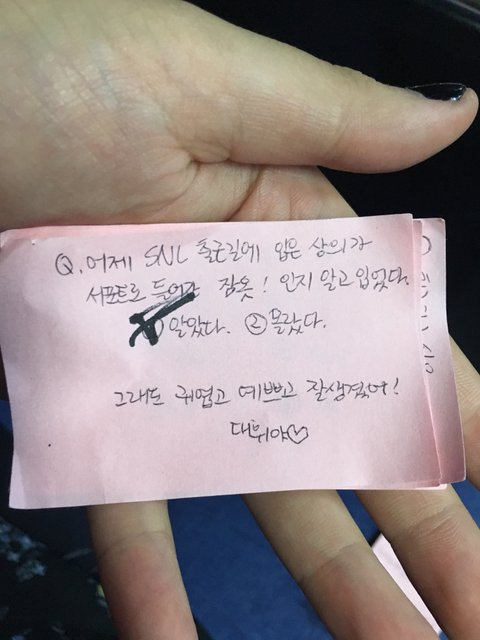 Q. 어제 SNL 출근길에 입은 상의가
서포트로 들어간 잠옷! 인지 알고 입었다.
① 알았다. ② 몰랐다.
그래도 귀엽고 예쁘고 잘생겼어!
대휘야♡